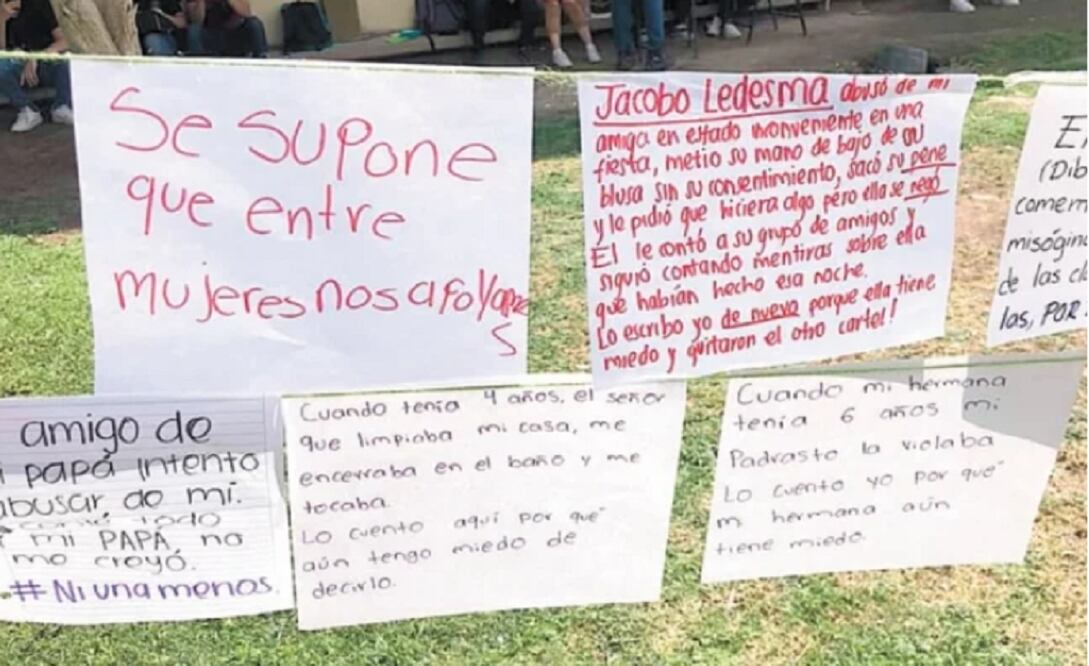 Se supone
que entre
mujeres nos apoyamos
Jacobo Ledesma abusó de mi
amiga en estado inconveniente en una
fiesta, metio su mano de bajo de su
blusa sin su consentimiento, sacó su pene
y le pidió que hiciera algo pero ella se negó
El le contó a su grupo de amigos y
siguió contando mentiras sobre ella
que habían hecho esa noche.
Lo escribo yo de nuevo porque ella tiene
miedo y quitaron el otro cartel!
(Dib
misógin
de las
las, POR
amigo de
papá intentó
abusar, de mi.
como todo
mi PAPÁ, no
me creyó.
#Niunamenos.
Cuando tenía 4 años, el señor
que limpiaba mi casa, me
encerraba en el baño y me
tocaba.
Lo cuento aquí por que
aún tengo miedo de
decirlo.
Cuando mi hermana
tenía 6 años mi
Padrasto la violaba
Lo cuento yo por que
mi hermana aún
tiene miedo.